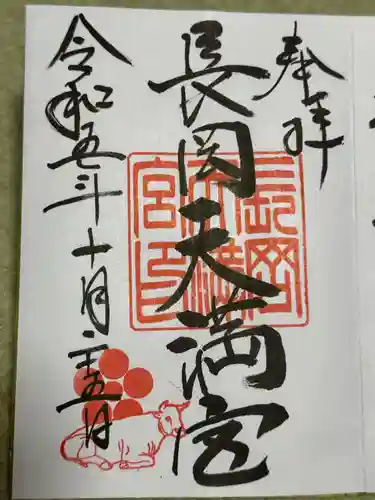 奉拝
長岡天満宮
長岡天満宮印
令和五年十月二十五日